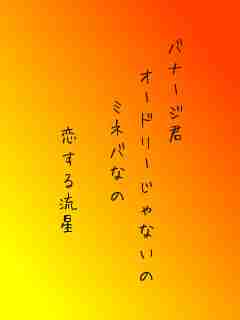 バナージ君
オードリーじゃないの
ミネバなの
恋する流星